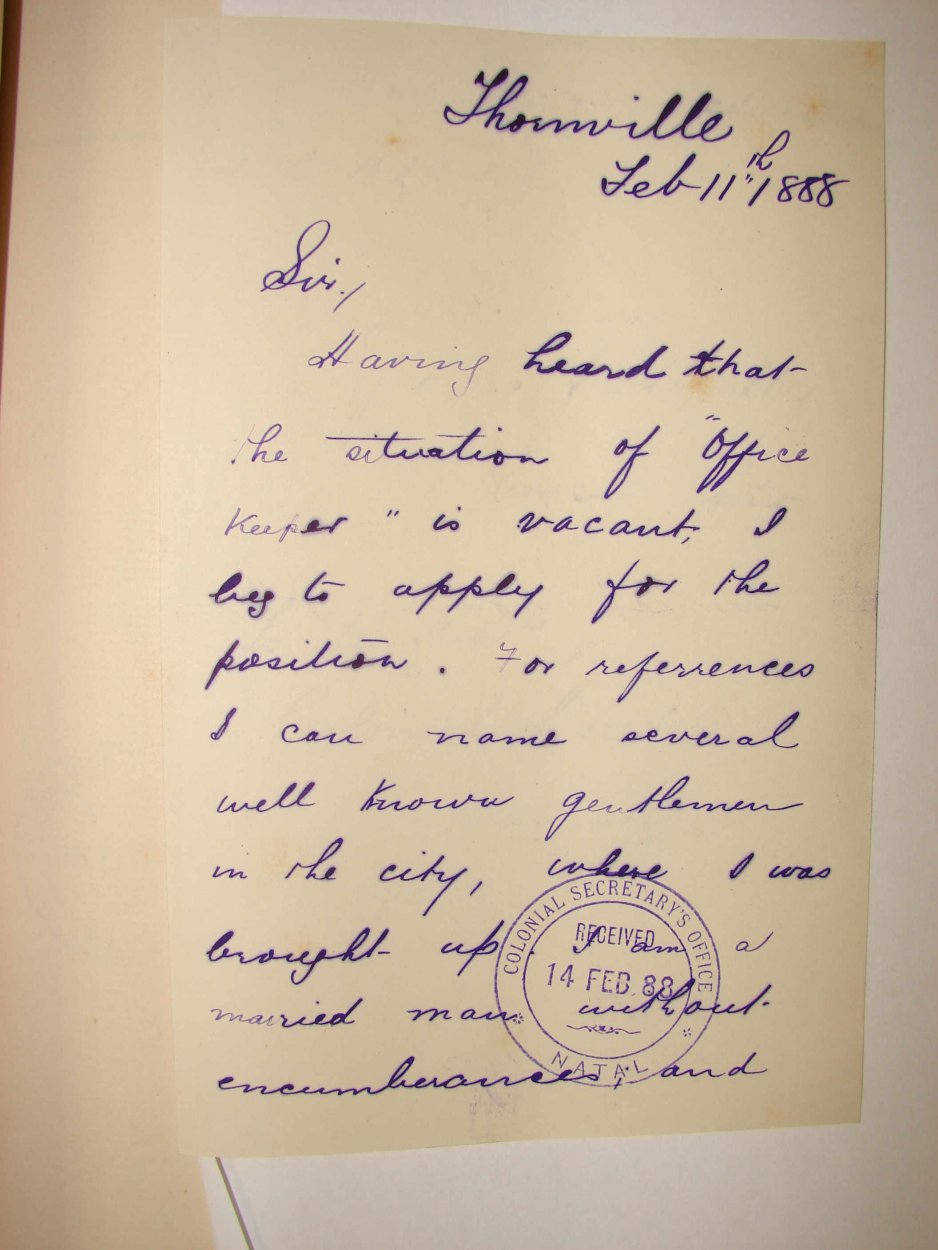 Thornville
Feb 11th/1888
Sir.,
Having heard that
the situation of "Office
Keeper" is vacant, I
beg to apply for the
position. For referrences
I can name several
well known gentlemen
in the city, where I was
brought up. I am a
married man without
encumberances, and
COLONIAL SECRETARY'S OFFICE
RECEIVED
14 FEB. 88
NATAL